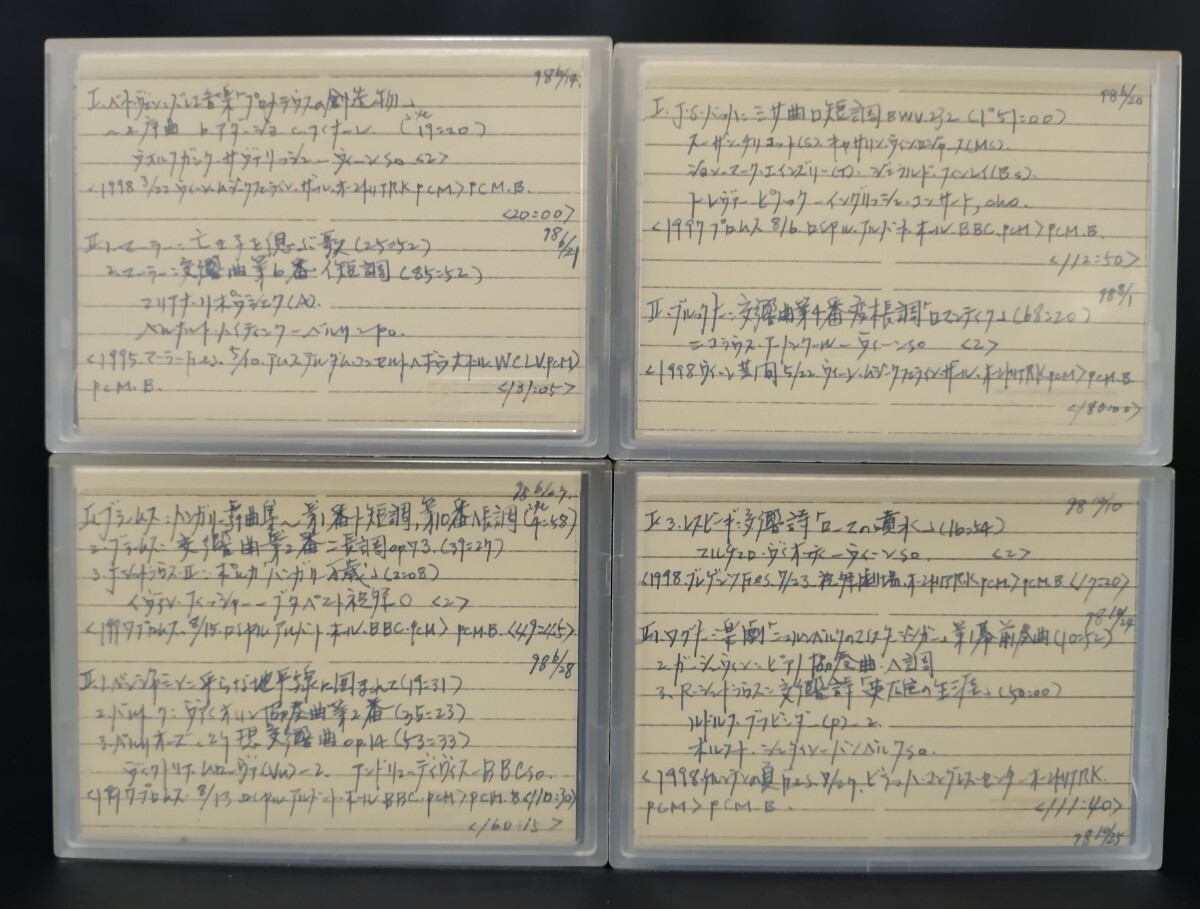 98 6/14.
I. ベートーヴェン:バレエ音楽「プロメテウスの創造物」
〜a.序曲 b.アダージョ c.フィナーレ. (19=20)
ウォルフガング・サヴァリッシューウィーンso <2>
<1998 3/22 ウィーン・ムジークフェライン・ザール オーストリTRK PCM> PCM.B.
<20=00>
98 6/21
II.1.マーラー:亡き子を偲ぶ歌 (25=52)
2.マーラー:交響曲第6番イ短調 (85=52)
マリヤナ・リポヴシェク(A).
ベルナルト・ハイティンクーベルリンpo.
<1995.マーラーFes. 5/10. アムステルダム・コンセルトヘボウ大ホール. WCLV.PCM>
PCM.B. <131=05>
98 6/20
I. J.S.バッハ:ミサ曲ロ短調 BWV.232 (1°51=00)
スーザン・グリットン(S). キャサリン・ウィン・ロジャース(MS).
ジョン・マーク・エインズリー(T). ジェラルド・フィンレイ(Bs).
トレヴァー・ピノックーイングリッシュ・コンサート, cho.
<1997プロムス 8/6. ロイヤル・アルバート・ホール. BBC. PCM> PCM.B.
<112=50>
98 8/1
II. ブルックナー:交響曲第4番変ホ長調「ロマンティク」 (68=20)
ニコラウス・アーノンクールーウィーンso <2>
<1998.ウィーン芸術週間 5/22. ウィーン・ムジークフェライン・ザール. オーストリTRK PCM> PCM.B.
<180=00>
98 6/27.
I.1.ブラームス:ハンガリー舞曲集〜第1番ト短調, 第10番ヘ長調 (4=58)
2.ブラームス:交響曲第2番ニ長調op73. (39=27)
3.J・シュトラウスII:ポルカ「ハンガリー万歳」 (2=08)
イヴァン・フィッシャーーブダペスト祝祭O <2>
<1997プロムス. 8/15. ロイヤル アルバート・ホール. BBC. PCM> PCM.B. <49=45>
98 6/28
II.1.ベンジャミン:平らな地平線に囲まれて (19=31)
2.バルトーク:ヴァイオリン協奏曲第2番 (35=23)
3.ベルリオーズ:幻想交響曲op14 (53=33)
ヴィクトリア・ムローヴァ(Vn)ー2. アンドリュー・デイヴィスーBBCso.
<1997プロムス 8/13. ロイヤル アルバート・ホール. BBC. PCM> PCM.B <110=30>
<160=15>
98 10/10
I. 3.レスピーギ:交響詩「ローマの噴水」 (16=54)
マルチェロ・ヴィオッティーウィーンso. <2>
<1998. ブレゲンツFes. 7/23. 祝祭劇場. オーストリTRK PCM> PCM.B <17=20>
98 10/24
II.1.ワグナー:楽劇「ニュルンベルクのマイスタージンガー」第1幕前奏曲 (10=52)
2.ガーシュウィン:ピアノ協奏曲ヘ調
3.R・シュトラウス:交響詩「英雄の生涯」 (50=00)
ルドルフ・ブッフビンダー(P)ー2.
<1998 ケルンテンの夏Fes. 8/27. ビラッハ・コングレス・センター オーストリTRK.
PCM> PCM.B. <111=40>
98 10/25